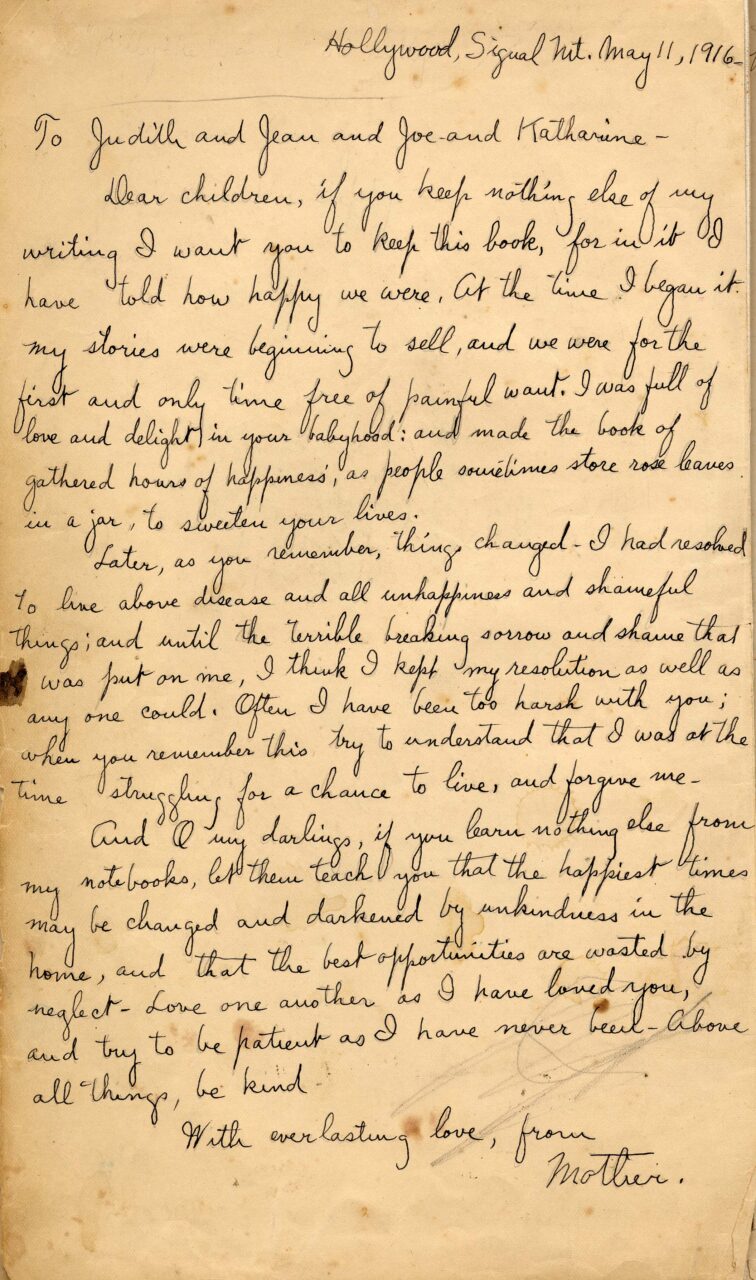 Hollywood, Signal Mt. May 11, 1916-
To Judith and Jean and Joe and Katharine -
Dear children, if you keep nothing else of my
writing I want you to keep this book, for in it I
have told how happy we were. At the time I began it
my stories were beginning to sell, and we were for the
first and only time free of painful want. I was full of
love and delight in your babyhood: and made the book of
gathered hours of happiness, as people sometimes store rose leaves
in a jar, to sweeten your lives.
Later, as you remember, things changed - I had resolved
to live above disease and all unhappiness and shameful
things; and until the terrible breaking sorrow and shame that
was put on me, I think I kept my resolution as well as
any one could. Often I have been too harsh with you;
when you remember this try to understand that I was at the
time struggling for a chance to live, and forgive me -
And O my darlings, if you learn nothing else from
my notebooks, let them teach you that the happiest times
may be changed and darkened by unkindness in the
home, and that the best opportunities are wasted by
neglect - Love one another as I have loved you,
and try to be patient as I have never been - Above
all things, be kind -
With everlasting love, from
Mother.